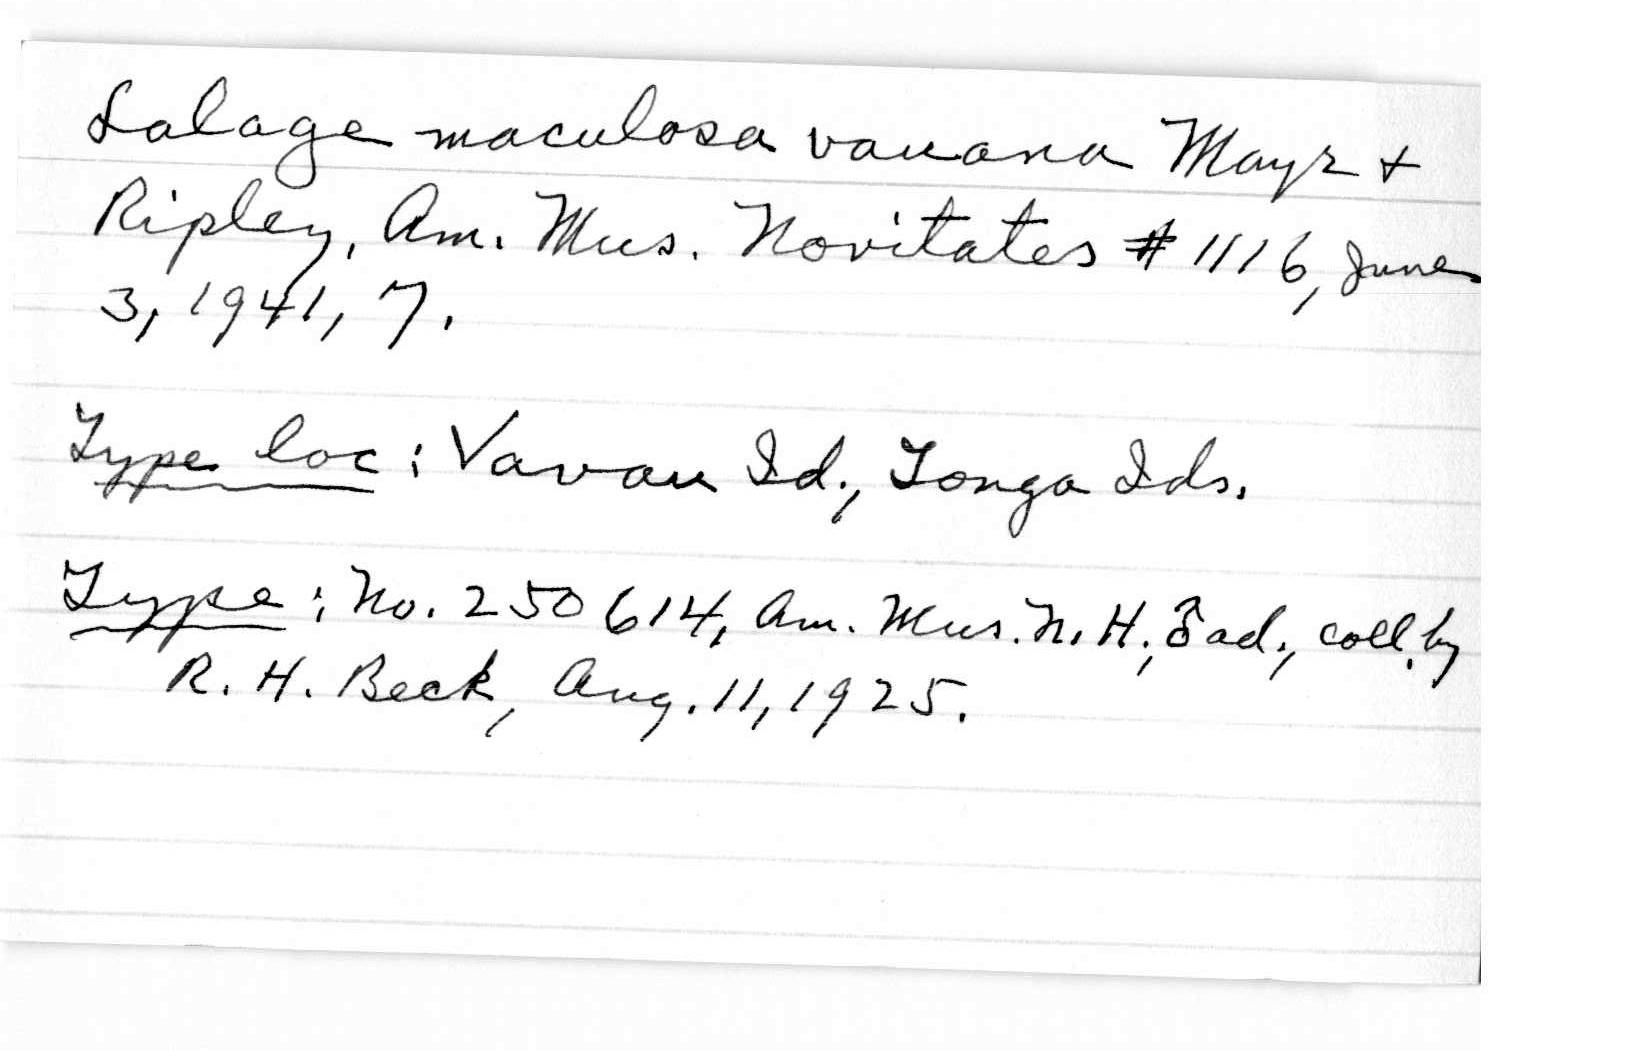 Lalage maculosa vauana Mayr +
Ripley, Am. Mus. Novitates # 1116, June
3, 1941, 7.
Type loc: Vavau Id., Tonga Ids.
Type: No. 250614, Am. Mus. N. H., ♂ ad., coll. by
R. H. Beck, Aug. 11, 1925.